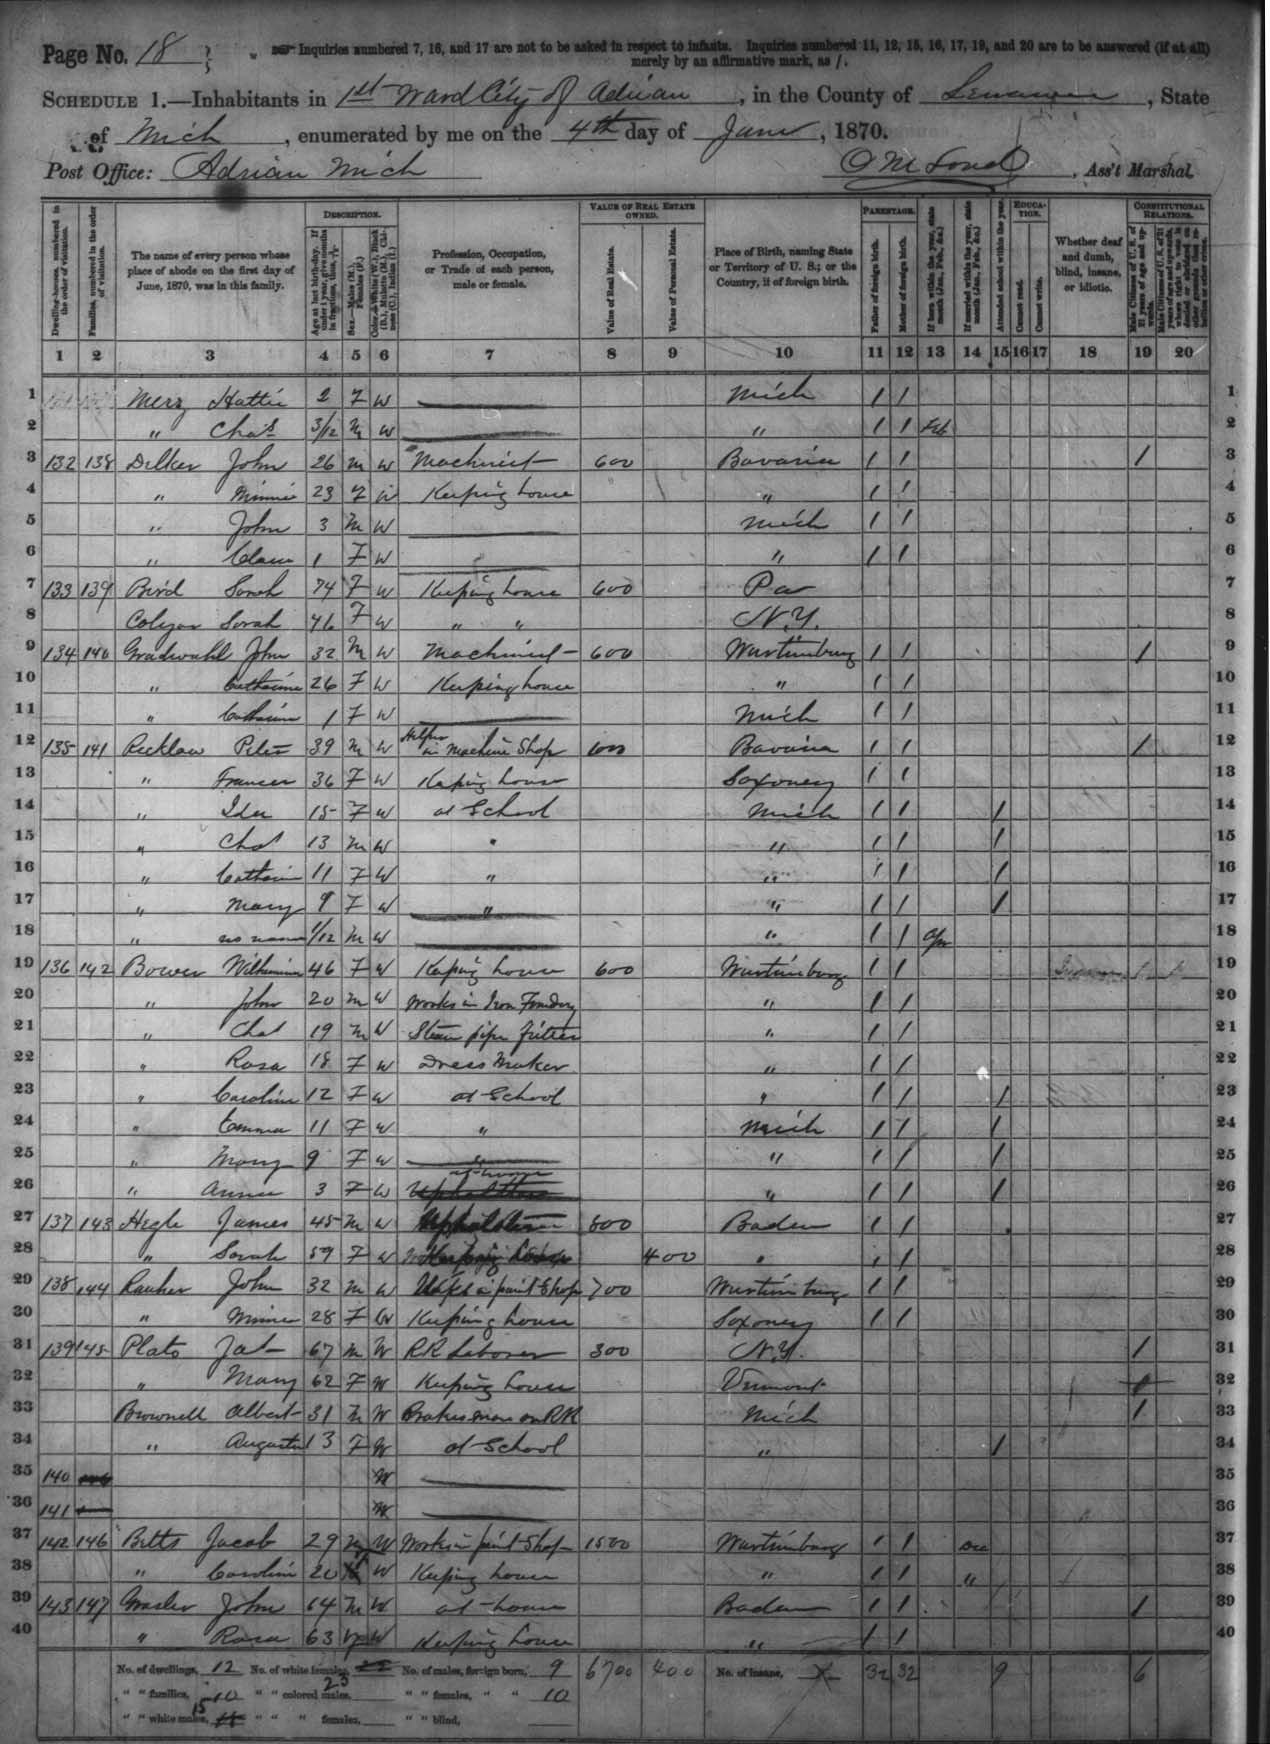 Page No. 18 Inquiries numbered 7, 16, and 17 are not to be asked in respect to infants. Inquiries numbered 11, 12, 15, 16, 17, 19, and 20 are to be answered (if at all)
merely by an affirmative mark, as /.
SCHEDULE 1.—Inhabitants in 1st Ward City of Adrian, in the County of Lenawee, State
of Mich, enumerated by me on the 4th day of June, 1870.
Post Office: Adrian Mich O M Ass't Marshal.
Dwelling-houses, numbered in the order of visitation.
Families, numbered in the order of visitation.
The name of every person whose place of abode on the first day of June, 1870, was in this family.
DESCRIPTION.
Age at last birth-day. If under 1 year, give months in fractions, thus, 3/12
Sex.—Males (M.), Females (F.)
Color.—White (W.), Black (B.), Mulatto (M.), Chinese (C.), Indian (I.)
Profession, Occupation, or Trade of each person, male or female.
VALUE OF REAL ESTATE OWNED.
Value of Real Estate.
Value of Personal Estate.
Place of Birth, naming State or Territory of U. S.; or the Country, if of foreign birth.
PARENTAGE.
Father of foreign birth.
Mother of foreign birth.
If born within the year, state month (Jan., Feb., &c.)
If married within the year, state month (Jan., Feb., &c.)
Attended school within the year.
EDUCATION.
Cannot read.
Cannot write.
Whether deaf and dumb, blind, insane, or idiotic.
CONSTITUTIONAL RELATIONS.
Male Citizens of U. S. of 21 years of age and upwards.
1 2 3 4 5 6 7 8 9 10 11 12 13 14 15 16 17 18 19 20
1 Merz Hattie 2 F W Mich / / 1
2 " Chas 3/12 M W " / / Feb 2
3 132 138 Dilker John 26 M W Machinist 600 Bavaria / / / 3
4 " Minnie 23 F W Keeping house " / / 4
5 " John 3 M W Mich / / 5
6 " Clara 1 F W " / / 6
7 133 139 Bird Sarah 74 F W Keeping house 600 Pa 7
8 Sarah 46 F W " " N.Y. 8
9 134 140 Gradwahl John 32 M W Machinist 600 Wurtimburg / / / 9
10 " Catharine 26 F W Keeping house " / / 10
11 " Catharine 1 F W Mich / / 11
12 135 141 Recklaw Peter 39 M W Helper in Machine Shop 600 Bavaria / / / 12
13 " Frances 36 F W Keeping house Saxoney / / 13
14 " Ida 15 F W at School Mich / / / 14
15 " Chas 13 M W " " / / / 15
16 " Catharin 11 F W " " / / / 16
17 " Mary 9 F W " " / / / 17
18 " no name 1/12 M W " / / Apr 18
19 136 142 Bower Wilhimina 46 F W Keeping house 600 Wurtimburg / / 19
20 " John 20 M W Works in Iron Foundry " / / 20
21 " Chas 19 M W Steam pipe fitter " / / 21
22 " Rosa 18 F W Dress Maker " / / 22
23 " Caroline 12 F W at School " / / / 23
24 " Emma 11 F W " Mich / / / 24
25 " Mary 9 F W " " / / / 25
26 " Annie 3 F W at home " / / / 26
27 137 143 Hegle James 45 M W Upholsterer 800 Baden / / 27
28 " Sarah 59 F W Keeping house 400 " / / 28
29 138 144 Rauher John 32 M W Works in paint Shop 700 Wurtimburg / / 29
30 " Minnie 28 F W Keeping house Saxoney / / 30
31 139 145 Plato Jas 67 M W RR Laborer 300 N.Y. / 31
32 " Mary 62 F W Keeping house Vermont 32
33 Brownell Albert 31 M W Brakesman on RR Mich / 33
34 " Augusta 13 F W at School " / 34
35 140 W 35
36 141 W 36
37 142 146 Betts Jacob 29 M W Works in paint Shop 1500 Wurtimburg / / Dec 37
38 " Caroline 20 W Keeping house " / / " 38
39 143 147 Grasler John 64 M W at home Baden / / / 39
40 " Rosa 63 F W Keeping house " / / 40
No. of dwellings, 12 No. of white females, 23 No. of males, foreign born, 9 6700 400 No. of insane, 32 32 9 6
" " families, 10 " " colored males, " " females, " " 10
" " white males, 15 " " " females, " " blind,